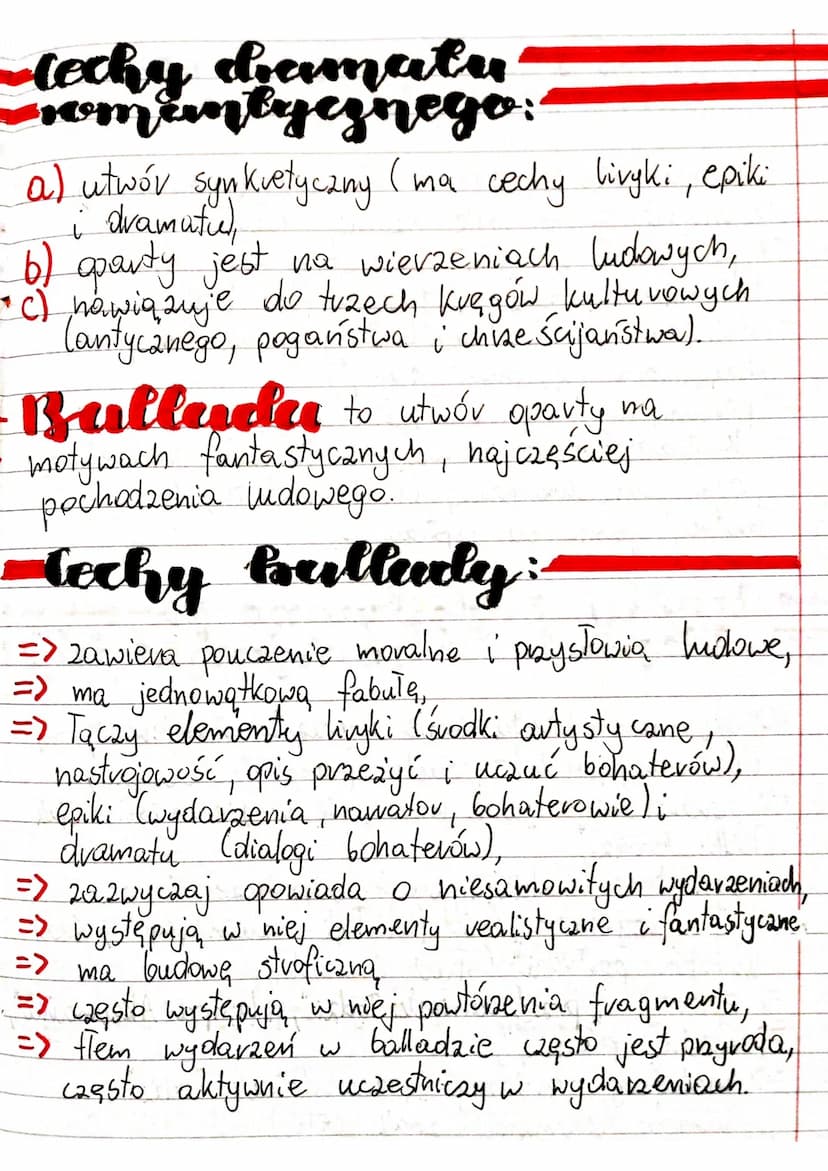 Cechy dramatu
romantycznego:
a) utwór synkretyczny (ma cechy liryki, epiki
i dramatu),
b) oparty jest na wierzeniach ludowych,
c) nawiązuje do trzech kręgów kulturowych
(antycznego, pogaństwa i chrześcijaństwa).
Ballada to utwór oparty na
motywach fantastycznych, najczęściej
pochodzenia ludowego.
Cechy ballady:
=> zawiera pouczenie moralne i przysłowia ludowe,
=> ma jednowątkową fabułę,
=> łączy elementy liryki (środki artystyczne,
nastrojowość, opis przeżyć i uczuć bohaterów),
epiki (wydarzenia, narrator, bohaterowie) i
dramatu (dialogi bohaterów),
=> zazwyczaj opowiada o niesamowitych wydarzeniach,
=> występują w niej elementy realistyczne i fantastyczne
=> ma budowę stroficzną
=> często występują w niej powtórzenia fragmentu,
=> tłem wydarzeń w balladzie często jest przyroda,
często aktywnie uczestniczy w wydarzeniach.